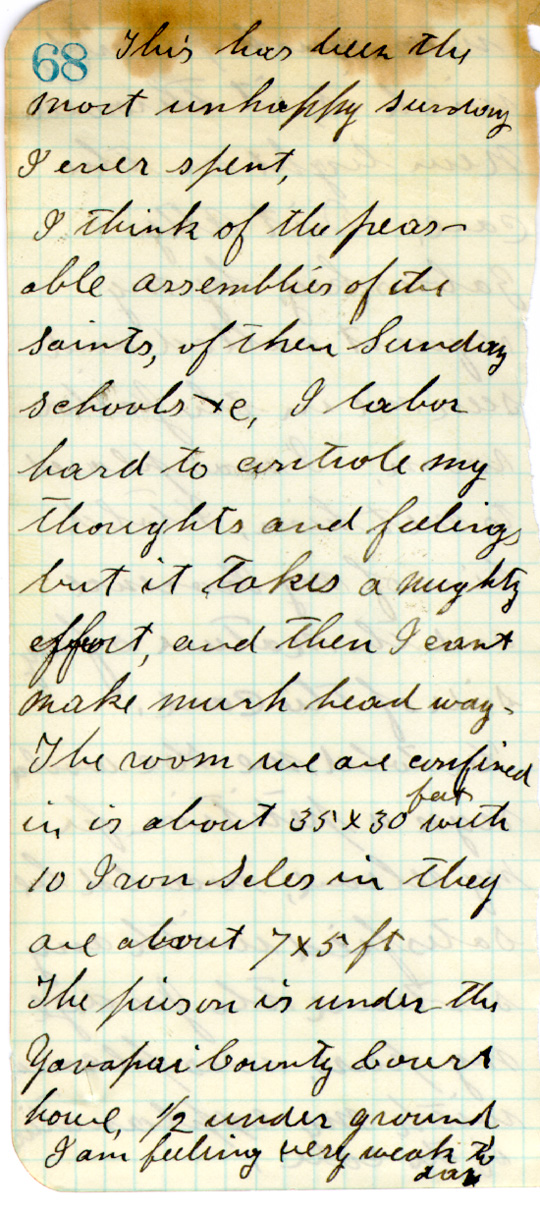 68 This has been the
most unhappy sunday
I ever spent,
I think of the peas-
able assemblies of the
saints, of then Sunday
schools &c, I labor
hard to controle my
thoughts and feelings
but it takes a mighty
effort, and then I cant
make much head way.
The room we are confined
in is about 35 x 30 feet with
10 Iron Seles in they
are about 7 x 5 ft
The prison is under the
Yavapai County Court
house, 1/2 under ground
I am feeling very weak to
day